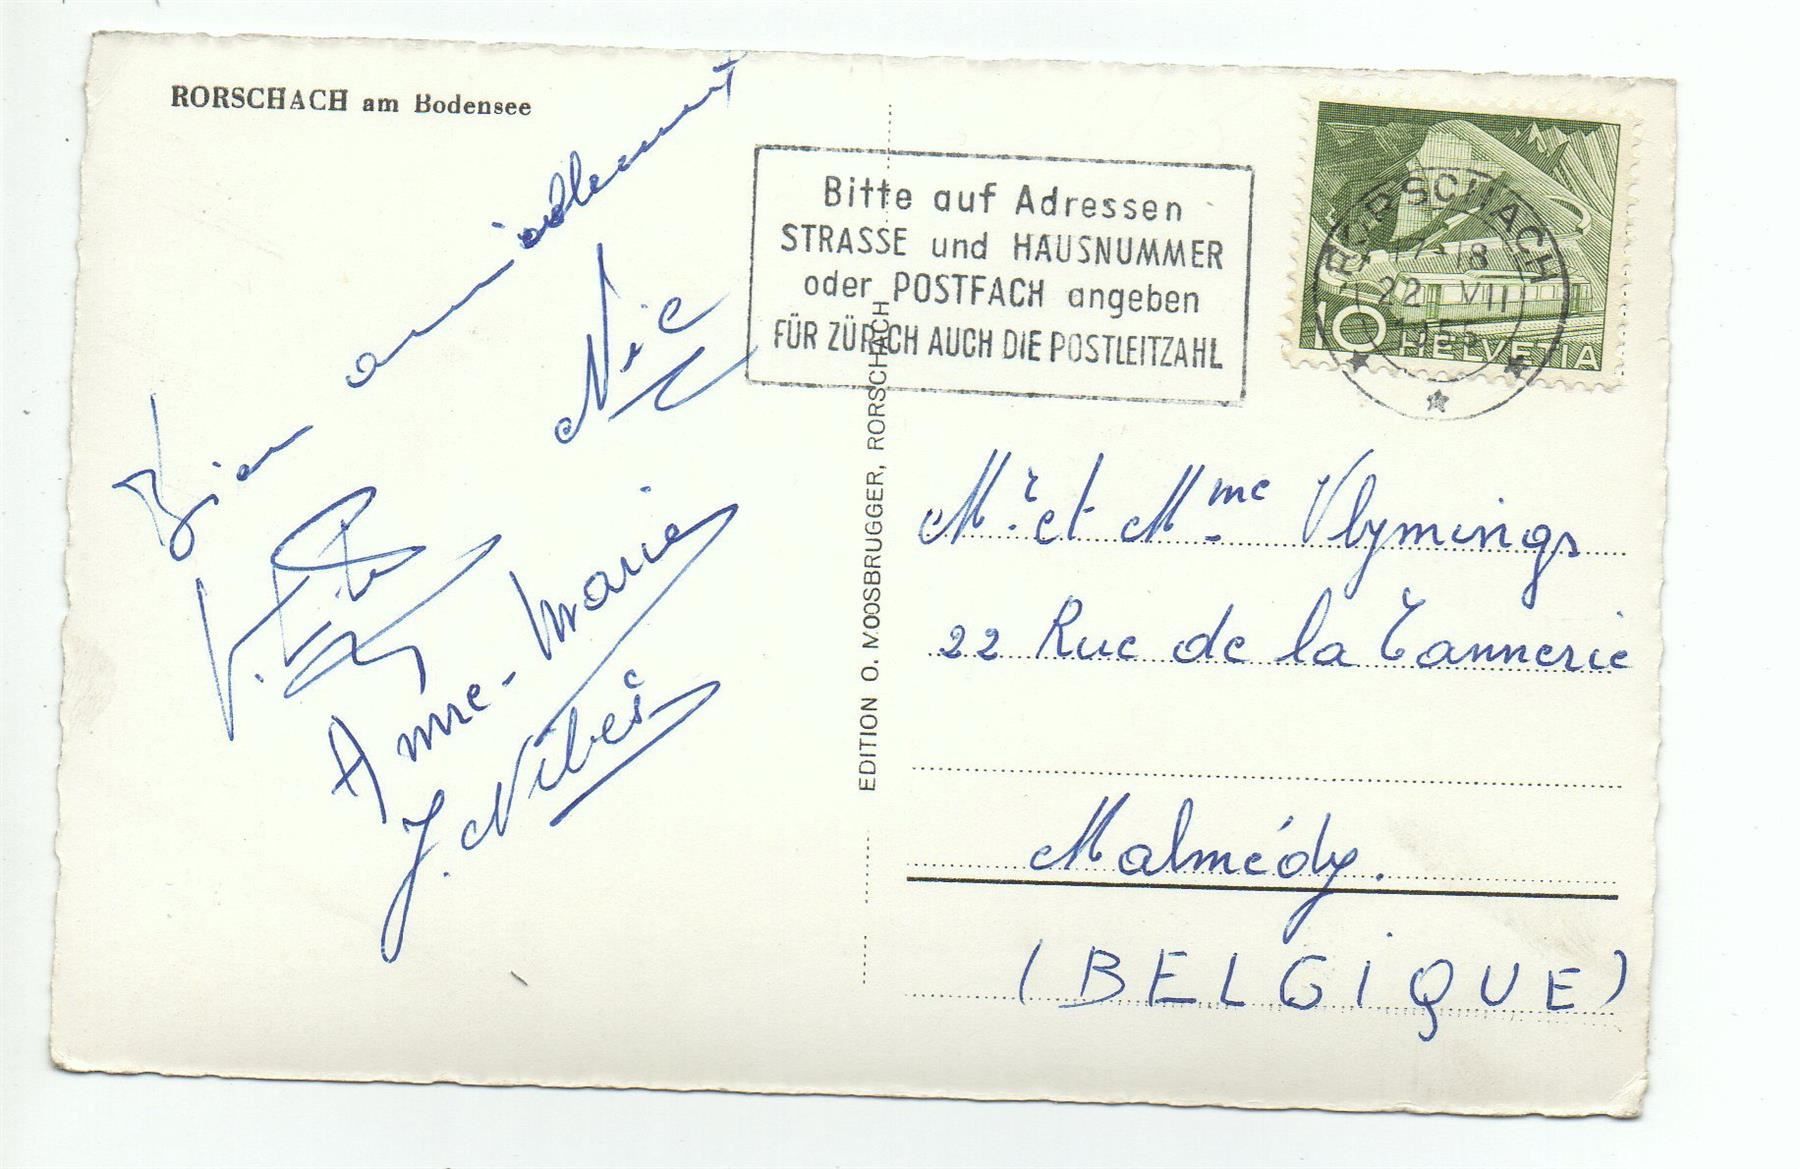 RORSCHACH am Bodensee
Bien amicalement
Nic
Anne-Marie
J.
EDITION O. MOOSBRUGGER, RORSCHACH
Bitte auf Adressen
STRASSE und HAUSNUMMER
oder POSTFACH angeben
FÜR ZÜRICH AUCH DIE POSTLEITZAHL
RORSCHACH
17-18
22 VII
1955
10 HELVETIA
Mr. et Mme Vlymings
22 Rue de la Tannerie
Malmédy.
(BELGIQUE)